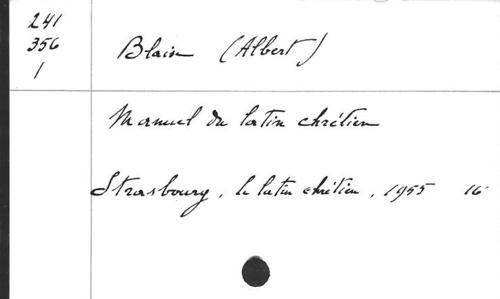 241
356
1
Blaise (Albert)
Manuel du latin chrétien
Strasbourg, le latin chrétien, 1955 16